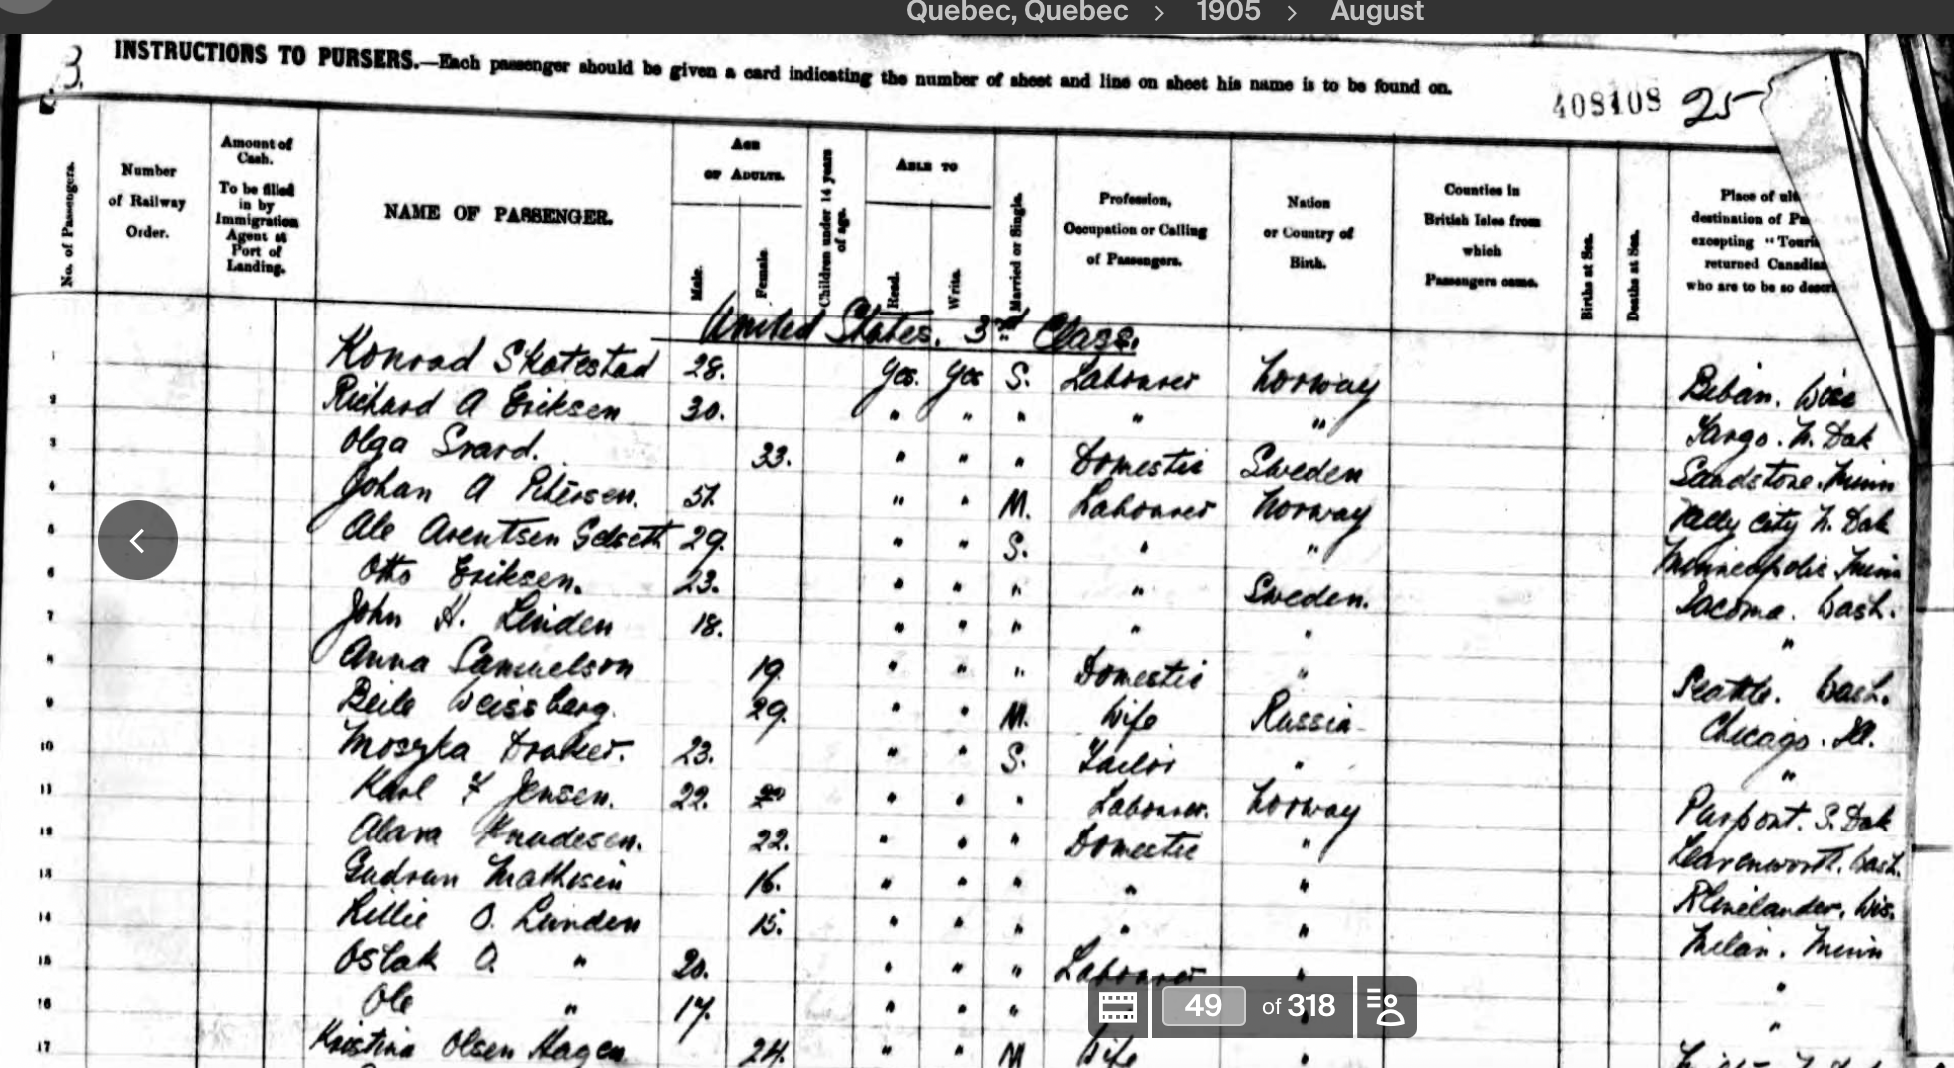 Quebec, Quebec > 1905 > August
3.
INSTRUCTIONS TO PURSERS.—Each passenger should be given a card indicating the number of sheet and line on sheet his name is to be found on.
408108 25
No. of Passengers.
Number of Railway Order.
Amount of Cash. To be filled in by Immigration Agent at Port of Landing.
NAME OF PASSENGER.
AGE OF ADULTS.
Male.
Female.
Children under 14 years of age.
ABLE TO
Read.
Write.
Married or Single.
Profession, Occupation or Calling of Passengers.
Nation or Country of Birth.
Counties in British Isles from which Passengers came.
Births at Sea.
Deaths at Sea.
Place of ult
destination of Pa
excepting "Touri
returned Canadia
who are to be so descri
United States. 3rd Class.
1 Konrad Skotestad 28. Yes. Yes S. Labourer Norway Wisc
2 Richard A Eriksen 30. " " " " " Fargo. N. Dak
3 Olga Svard. 33. " " " Domestic Sweden Sandstone. Minn
4 Johan A Petersen. 51. " " M. Labourer Norway Vally City N. Dak
5 Ole Arentsen 29. " " S. " " Minneapolis Minn
6 Otto Eriksen. 23. " " " " Sweden. Tacoma. Wash.
7 John H. Linden 18. " " " " " "
8 Anna Samuelson 19. " " " Domestic " Seattle. Wash.
9 Beile Weissberg. 29. " " M. Wife Russia Chicago. Ill.
10 23. " " S. Tailor " "
11 Karl F Jensen. 22. " " " Labourer. Norway S. Dak
12 Knudesen. 22. " " " Domestic " Leavenworth. Wash.
13 Gudrun Mathisen 16. " " " " " Rhinelander. Wis.
14 Lillie O. Lunden 15. " " " " " Milan. Minn
15 Oslak O. " 20. " " " Labourer " "
16 Ole " 17. " " " "
17 Kristina Olsen Hagen 24. " " M Wife "
49 of 318